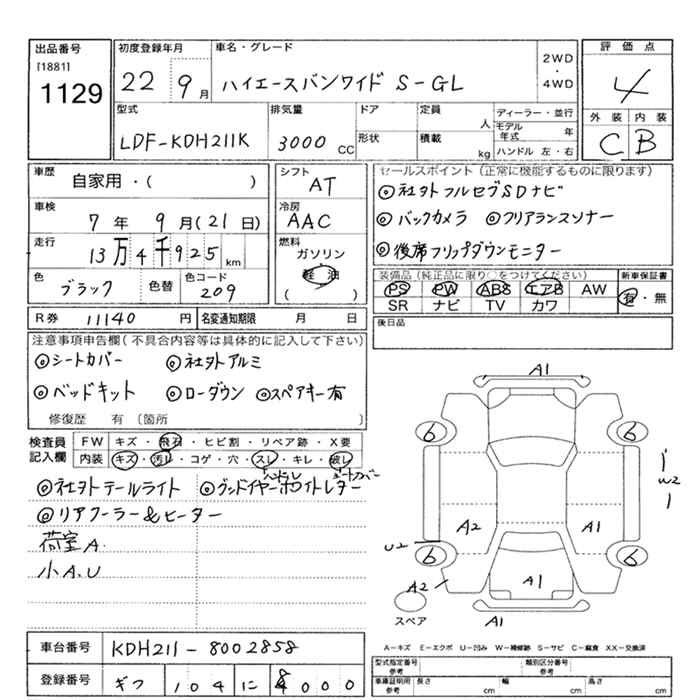 出品番号
[1881]
1129
初度登録年月
22 9月
車名・グレード
ハイエースバンワイド S-GL
2WD
・
4WD
評価点
4
外装 内装
C B
型式
LDF-KDH211K
排気量
3000 CC
ドア
形状
定員
人
積載
kg
ディーラー・並行
モデル年式 年
ハンドル 左・右
車歴
自家用・( )
車検
7年 9月(21日)
走行
13万4千925km
色
ブラック
色替
色コード
209
シフト
AT
冷房
AAC
燃料
ガソリン
軽油
( )
セールスポイント(正常に機能するものに限ります)
◎社外フルセグSDナビ
◎バックカメラ ◎クリアランスソナー
◎後席フリップダウンモニター
装備品(純正品に限り○をつけてください)
PS PW ABS エアB AW
SR ナビ TV カワ
新車保証書
有・無
後日品
R券 11140円
名変通知期限 月 日
注意事項申告欄(不具合内容等は具体的に記入して下さい)
◎シートカバー ◎社外アルミ
◎ベッドキット ◎ローダウン ◎スペアキー有
修復歴 有 〔箇所
検査員記入欄
FW キズ・飛石・ヒビ割・リペア跡・X要
内装 キズ・汚レ・コゲ・穴・スレ・キレ・破レ
ハンドル シートカバー
◎社外テールライト ◎グッドイヤーホワイトレター
◎リアクーラー&ヒーター
荷室A.
小A.U
A1
6 6
W2
A2 A1
U2
6 6
A2 A1
スペア
A1
A-キズ E-エクボ U-凹み W-補修跡 S-サビ C-腐食 XX-交換済
車台番号 KDH211-8002858
登録番号 ギフ 104 に 8000
型式指定番号 参考
類別区分番号 参考
車庫証明用 参考 長さ cm 幅 cm 高さ cm